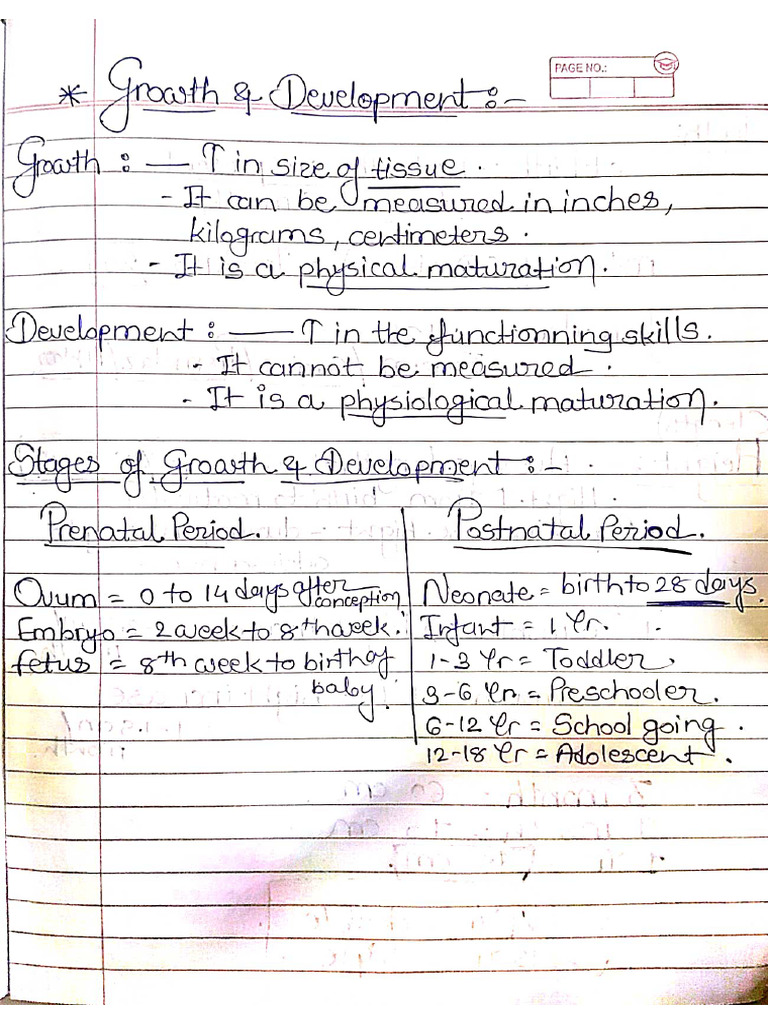 PAGE NO.:
* Growth & Development :-
Growth : — ↑ in size of tissue .
- It can be measured in inches,
kilograms, centimeters .
- It is a physical maturation .
Development : — ↑ in the functionning skills .
- It cannot be measured .
- It is a physiological maturation .
Stages of Growth & Development :-
Prenatal Period .
Ovum = 0 to 14 days after conception
Embryo = 2 week to 8th week .
fetus = 8th week to birth of
baby .
Postnatal Period .
Neonate = birth to 28 days .
Infant = 1 Yr .
1-3 Yr = Toddler .
3-6 Yr = Preschooler .
6-12 Yr = School going .
12-18 Yr = Adolescent .